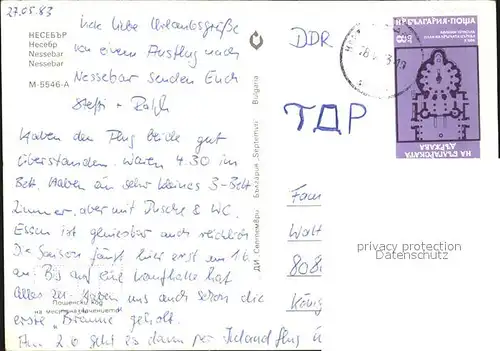 27.05.83
НЕСЕБЪР
Несебр
Nessebar
Nessebar
M-5546-A
Viele liebe Urlaubsgrüße
von einem Ausflug nach
Nessebar senden Euch
Steffi + Ralph
Haben den Flug beide gut
überstanden. Waren 4.30 im
Bett. Haben ein sehr kleines 3-Bett
Zimmer, aber mit Dusche & WC.
Essen ist genießbar auch reichlich
Die Saison fängt hier erst am 1.6.
an. Bis auf eine Kaufhalle hat
alles zu. Haben uns auch schon die
erste "Bräune" geholt.
Am 2.6 geht es dann per Inlandflug
Пощенски код
на местоназначението
ДИ „Септември" България „Septemvri" Bulgaria
DDR
ТДР
НР БЪЛГАРИЯ·ПОЩА
НА БЪЛГАРСКАТА
ДЪРЖАВА
Fam
Walt
808
König
privacy protection
Datenschutz